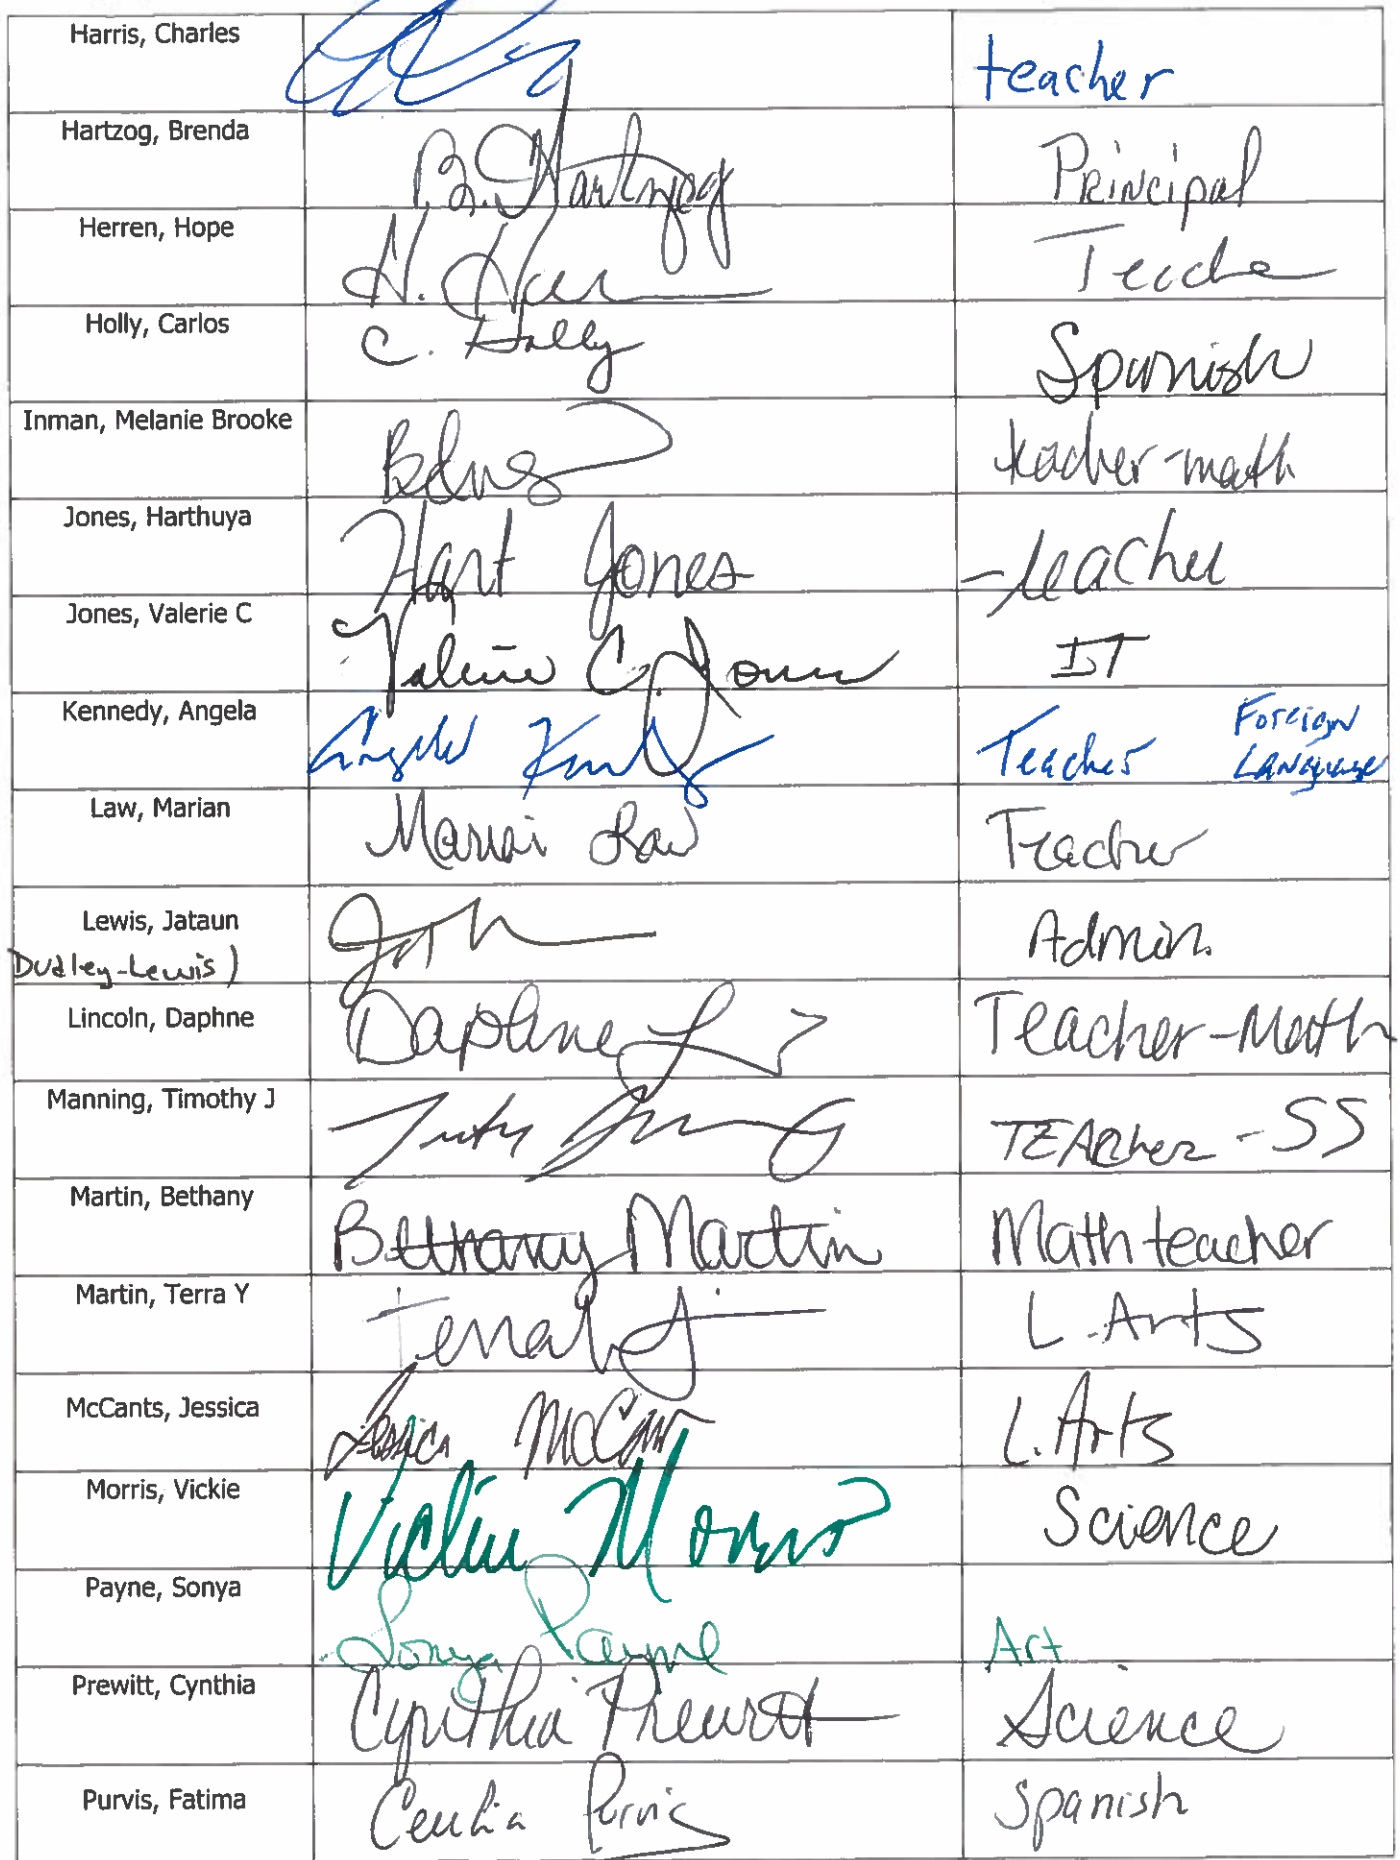 Harris, Charles teacher
Hartzog, Brenda B. Hartzog Principal
Herren, Hope H. Teacher
Holly, Carlos C. Holly Spanish
Inman, Melanie Brooke teacher-math
Jones, Harthuya Hart Jones teacher
Jones, Valerie C Valerie C. Jones IT
Kennedy, Angela Angela Kennedy Teacher Foreign Language
Law, Marian Marian Law Teacher
Lewis, Jataun Admin.
Dudley-Lewis)
Lincoln, Daphne Daphne Teacher-Math
Manning, Timothy J TEACher - SS
Martin, Bethany Bethany Martin Math teacher
Martin, Terra Y Terra L. Arts
McCants, Jessica Jessica McCan L. Arts
Morris, Vickie Vickie Morris Science
Payne, Sonya Sonya Payne Art
Prewitt, Cynthia Cynthia Prewitt Science
Purvis, Fatima Purvis Spanish